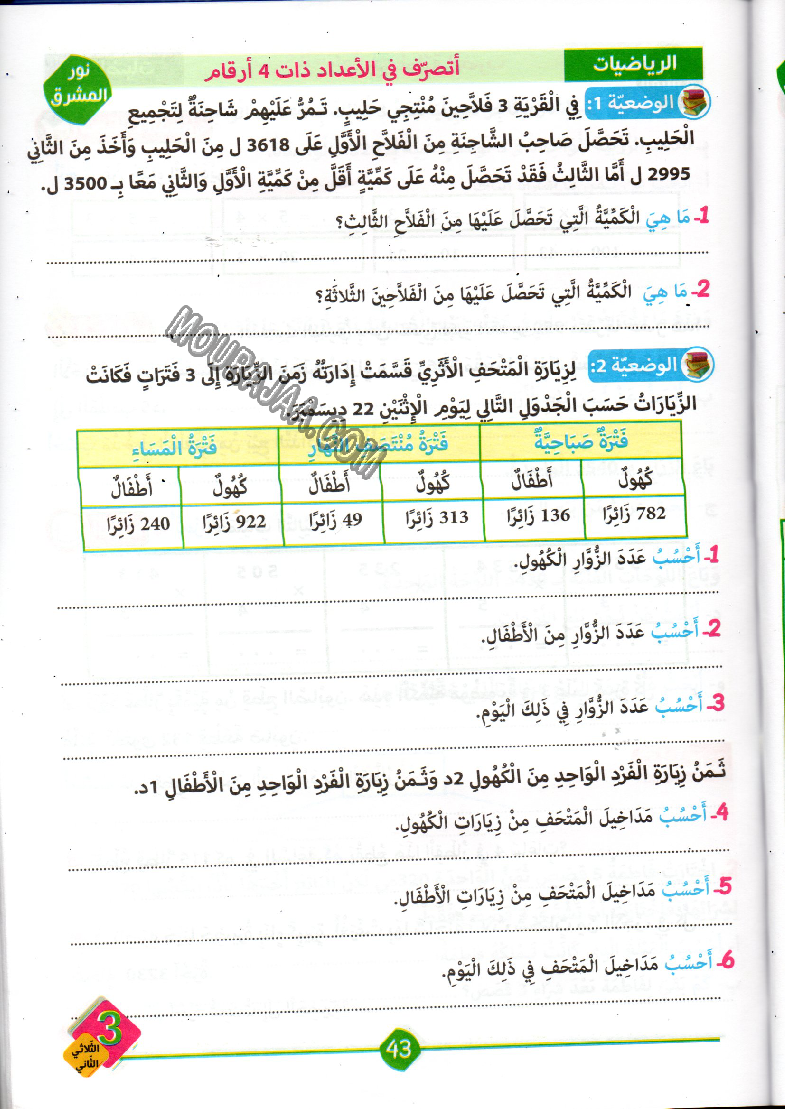 الرياضيات
أتصرّف في الأعداد ذات 4 أرقام
نور
المشرق
الوضعيّة 1: فِي الْقَرْيَةِ 3 فَلَاَحِينَ مُنْتِجِي حَلِيبٍ. تَمُرُّ عَلَيْهِمْ شَاحِنَةٌ لِتَجْمِيعِ
الْحَلِيبِ. تَحَصَّلَ صَاحِبُ الشَّاحِنَةِ مِنَ الْفَلاَّحِ الْأَوَّلِ عَلَى 3618 ل مِنَ الْحَلِيبِ وَأَخَذَ مِنَ الثَّانِي
2995 ل أَمَّا الثَّالِثُ فَقَدْ تَحَصَّلَ مِنْهُ عَلَى كَمِّيَّةٍ أَقَلَّ مِنْ كَمِّيَّةِ الْأَوَّلِ وَالثَّانِي مَعًا بِـ 3500 ل.
1- مَا هِيَ الْكَمِّيَّةُ الَّتِي تَحَصَّلَ عَلَيْهَا مِنَ الْفَلاَّحِ الثَّالِثِ؟
2- مَا هِيَ الْكَمِّيَّةُ الَّتِي تَحَصَّلَ عَلَيْهَا مِنَ الْفَلاَّحِينَ الثَّلاَثَةِ؟
MOURAJAA.COM
الوضعيّة 2: لِزِيَارَةِ الْمَتْحَفِ الْأَثَرِيِّ قَسَّمَتْ إِدَارَتُهُ زَمَنَ الزِّيَارَةِ إِلَى 3 فَتَرَاتٍ فَكَانَتْ
الزِّيَارَاتُ حَسَبَ الْجَدْوَلِ التَّالِي لِيَوْمِ الْإِثْنَيْنِ 22 دِيسَمْبَرَ.
فَتْرَةٌ صَبَاحِيَّةٌ فَتْرَةُ مُنْتَصَفِ النَّهَارِ فَتْرَةُ الْمَسَاءِ
كُهُولٌ أَطْفَالٌ كُهُولٌ أَطْفَالٌ كُهُولٌ أَطْفَالٌ
782 زَائِرًا 136 زَائِرًا 313 زَائِرًا 49 زَائِرًا 922 زَائِرًا 240 زَائِرًا
1- أَحْسُبُ عَدَدَ الزُّوَّارِ الْكُهُولِ.
2- أَحْسُبُ عَدَدَ الزُّوَّارِ مِنَ الْأَطْفَالِ.
3- أَحْسُبُ عَدَدَ الزُّوَّارِ فِي ذَلِكَ الْيَوْمِ.
ثَمَنُ زِيَارَةِ الْفَرْدِ الْوَاحِدِ مِنَ الْكُهُولِ 2د وَثَمَنُ زِيَارَةِ الْفَرْدِ الْوَاحِدِ مِنَ الْأَطْفَالِ 1د.
4- أَحْسُبُ مَدَاخِيلَ الْمَتْحَفِ مِنْ زِيَارَاتِ الْكُهُولِ.
5- أَحْسُبُ مَدَاخِيلَ الْمَتْحَفِ مِنْ زِيَارَاتِ الْأَطْفَالِ.
6- أَحْسُبُ مَدَاخِيلَ الْمَتْحَفِ فِي ذَلِكَ الْيَوْمِ.
3
الثّلاثي
الثّاني
43